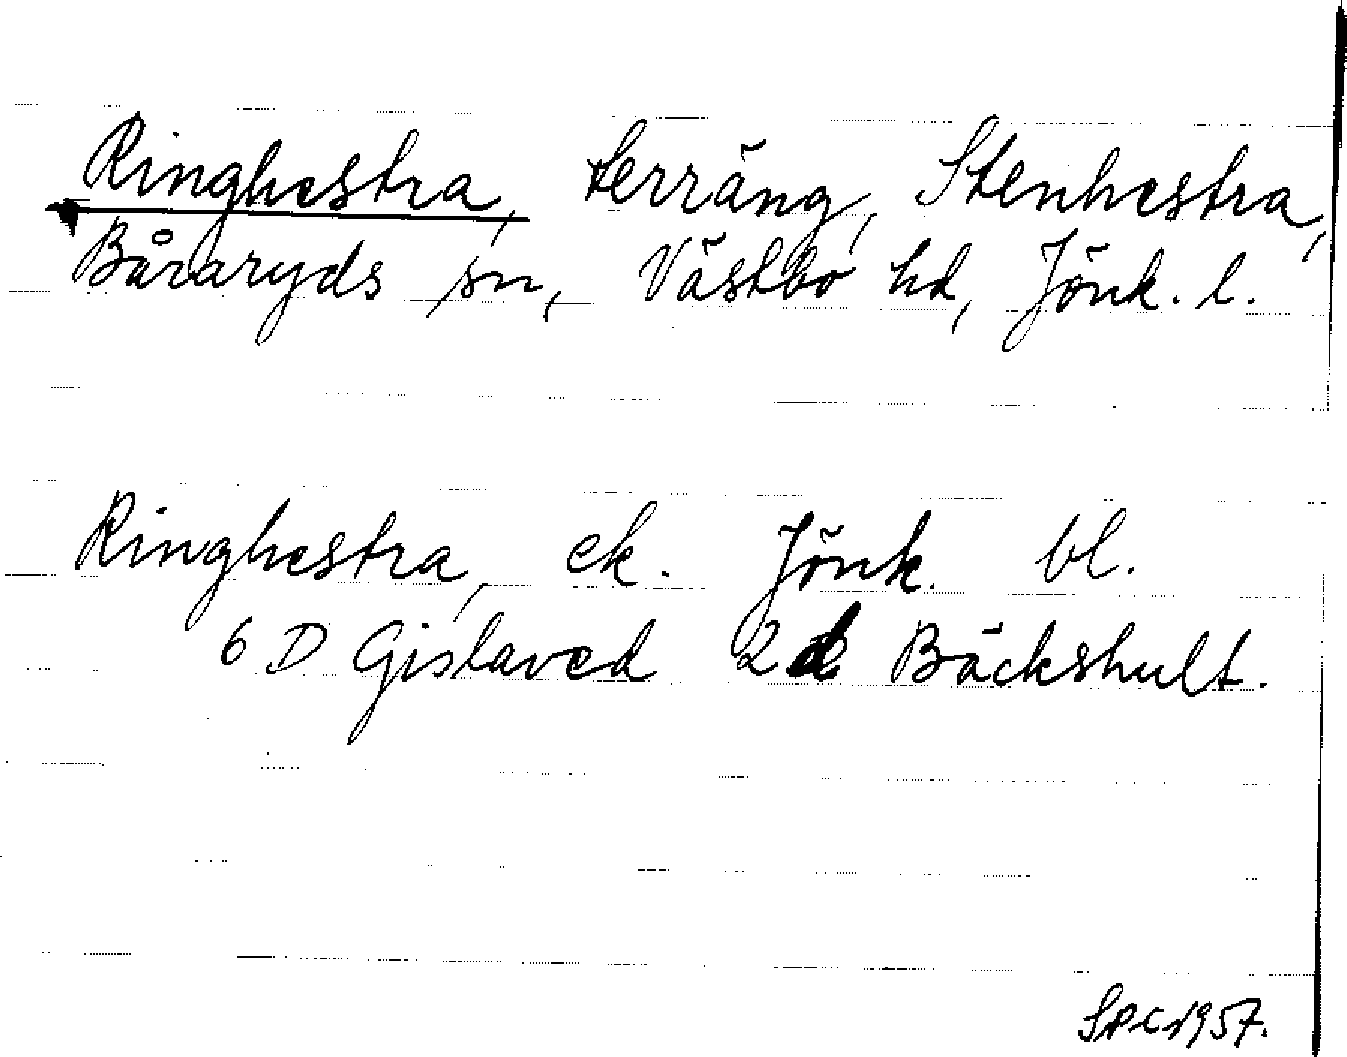 Ringhestra, terräng, Stenhestra,
Båraryds sn, Västbo hd, Jönk. l.
Ringhestra, ek. Jönk. bl.
6 D Gislaved 2d Bäckshult.
1957.